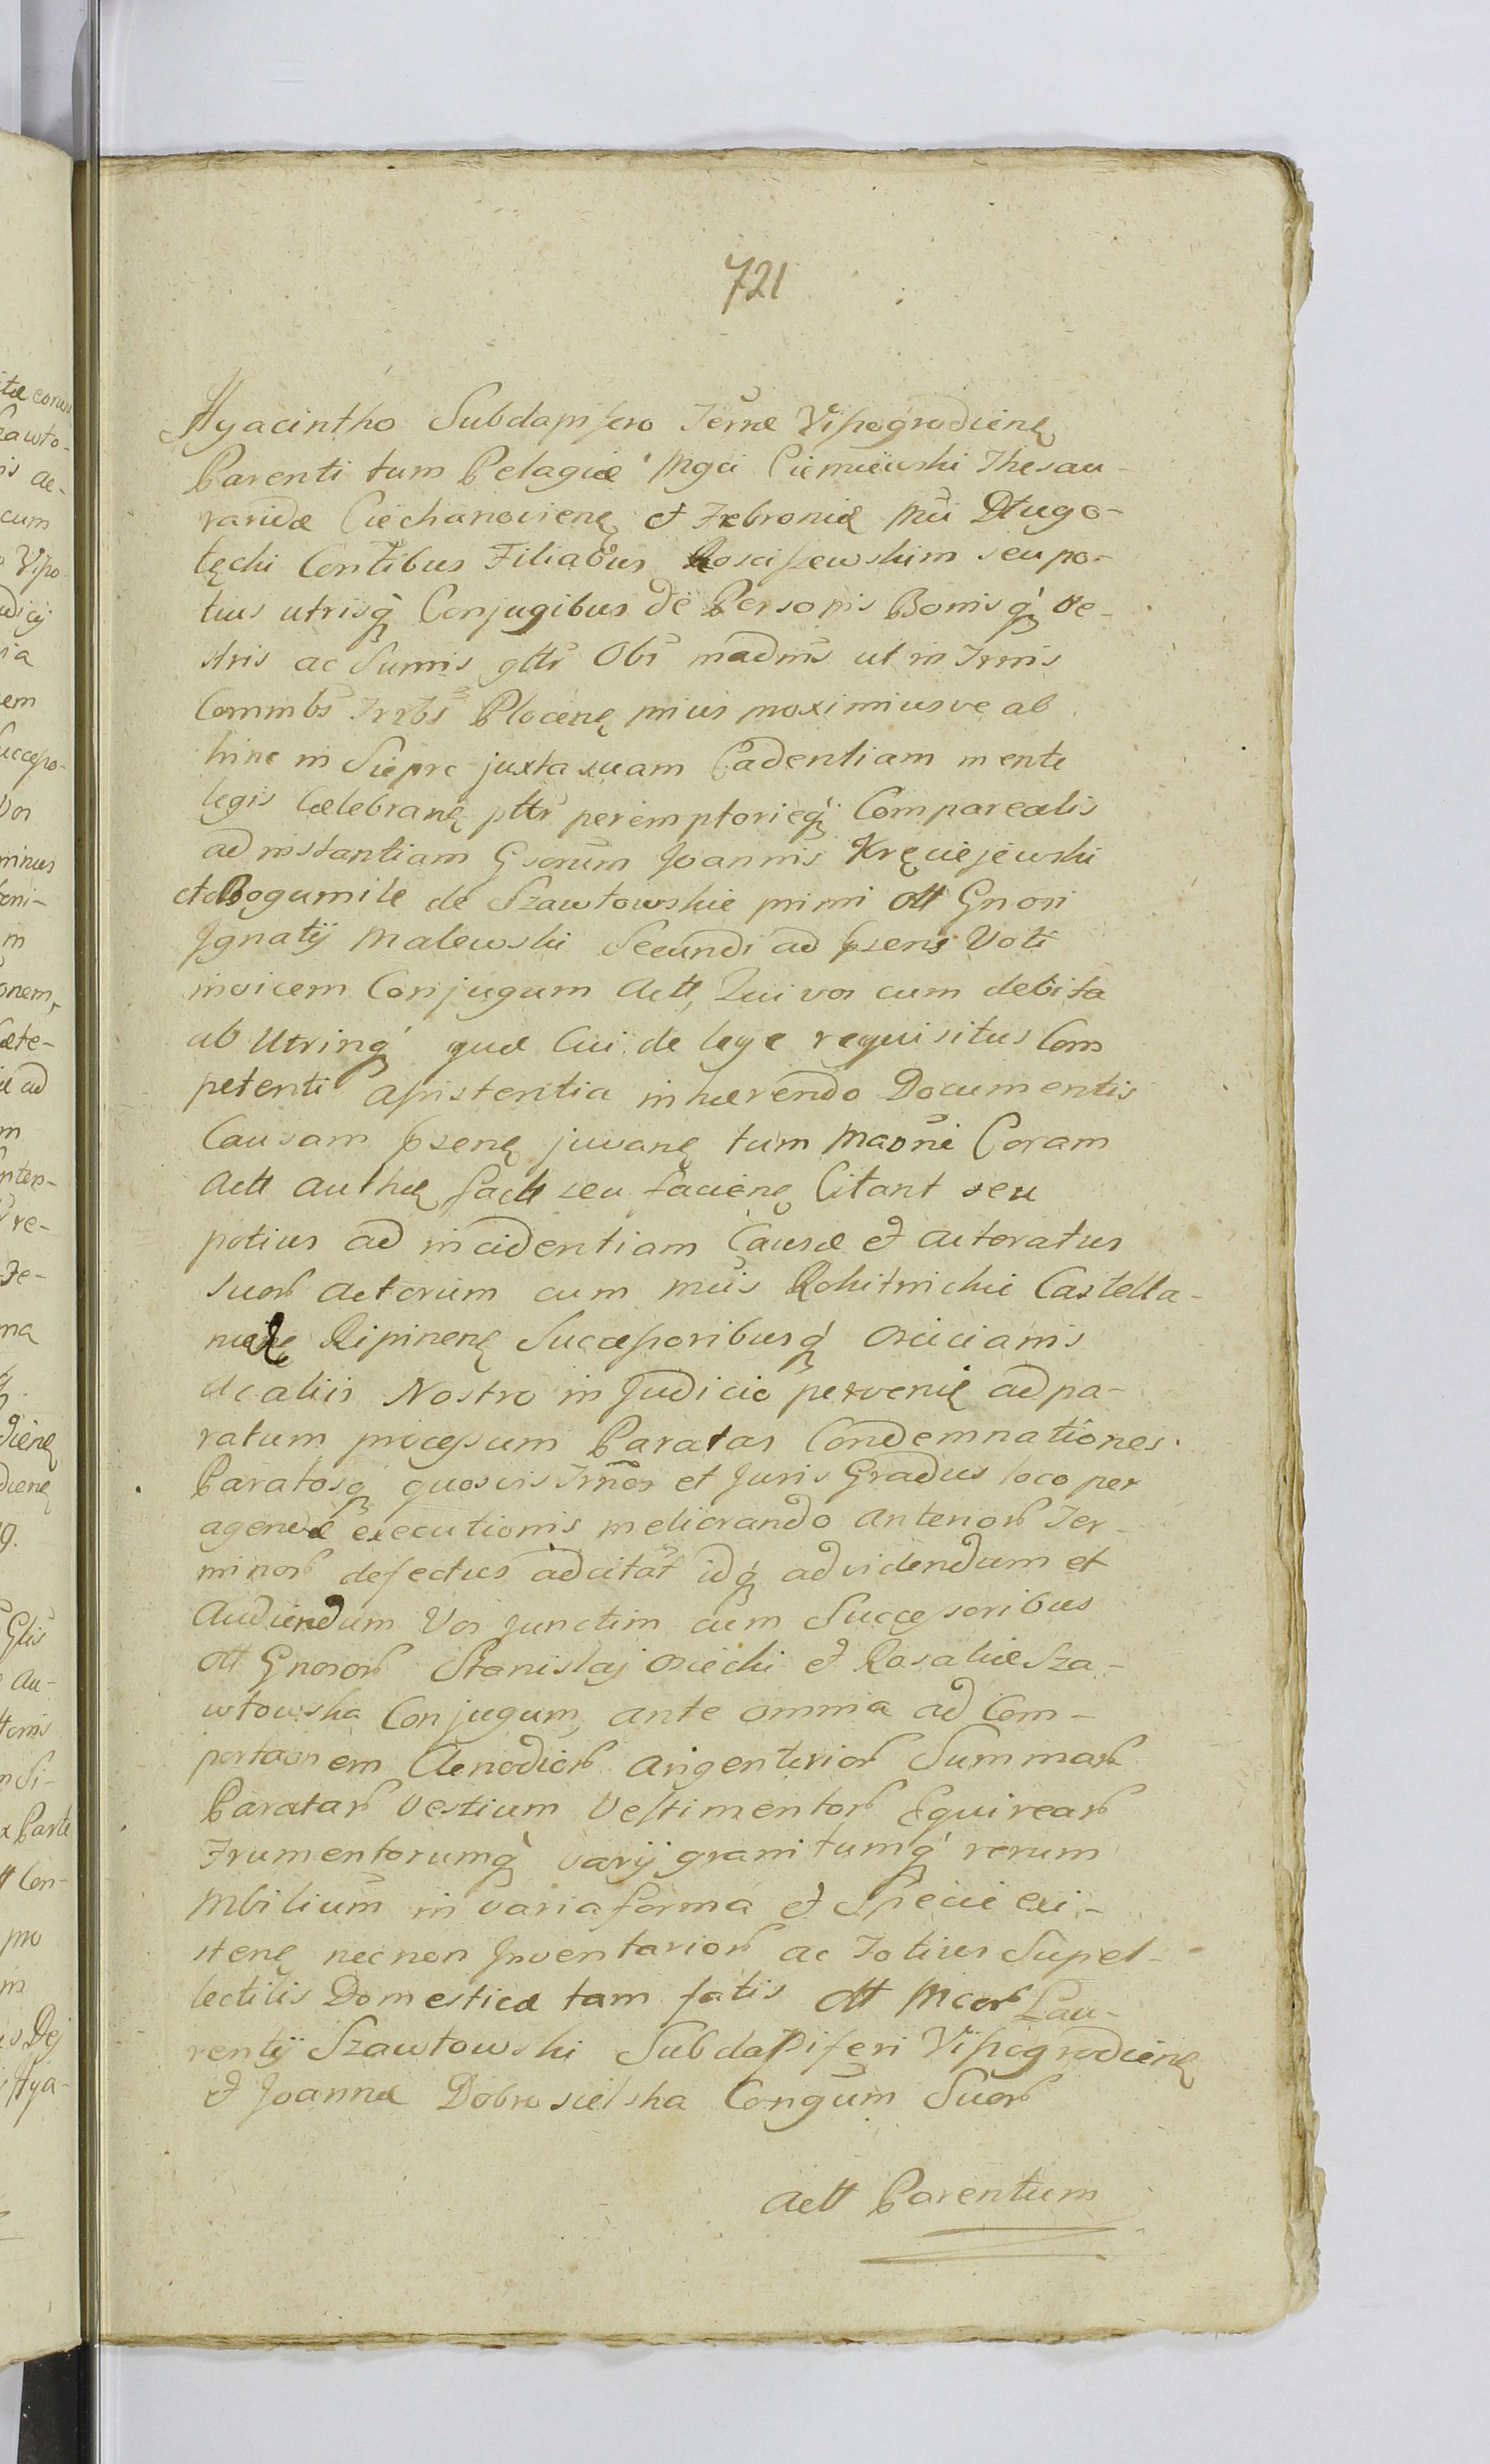 721
Hyacintho Subdapifero Terræ Vissogrodienę
Parenti tum Pelagiæ Mgci Ciemniewski Thesau-
raridæ Ciechanovienę et Febroniæ Mci Długo-
łęcki Contibus Filiabus Roscissewskim seu po-
tius utrisq Conjugibus de Personis Bonisq́ ve-
stris ac Sumis gltr Obs madms ut in Trmis
Commbs Trrbs Plocenę pius proximiusve ab
hinc in Sieprc juxta suam Cadentiam mente
legis Cælebranę pttr peremptorieq́ Compareatis
ad instantiam Gsorum Joannis Kręciejewski
et Bogumile de Szawłowskie primi Ott Gnosi
Jgnatij Malewski Secundi ad psens Voti
invicem Conjugum Actt, Qui vos cum debita
ab Utrinq́ quæ Cui de lege requisitus Com
petenti Assistentia inhærendo Documentis
Causam psenę juvanę tum Maoni Coram
Actt authę fact seu facienę Citant seu
potius ad incidentiam Causæ et actoratus
Suorb actorum cum Mcis Rokitnickie Castella-
nidę Ripinenę Successoribusq́ Osiecianis
Ac aliis Nostro in Judicio pervenię ad pa-
ratum processum Paratas Condemnationes
Paratosq quosvis Trmos et Juris Gradus loco per
agendæ executionis meliorando anteriorb Ter-
minorb defectus adcitat idq́ ad videndum et
Audiendum Vos junctim cum Successoribus
Ott Gnosorb Stanislaj Osiecki et Rosaliæ Sza-
włowska Conjugum, ante omnia ad Com-
portaonem Clenodiorb Argenteriorb Summarb
Paratarb Vestium Vestimentorb Equirearb
Frumentorumq́ varij grani tumq́ rerum
Mbilium in varia forma et Specie exi-
stenę necnon Jnventariorb ac Totius Supel-
lectilis Domesticæ tam fatis Ott Mcorb Lau-
rentij Szawłowski Subdapiferi Vissogrodienę
et Joannæ Dobrosielska Congum Suorb
Actt Parentum